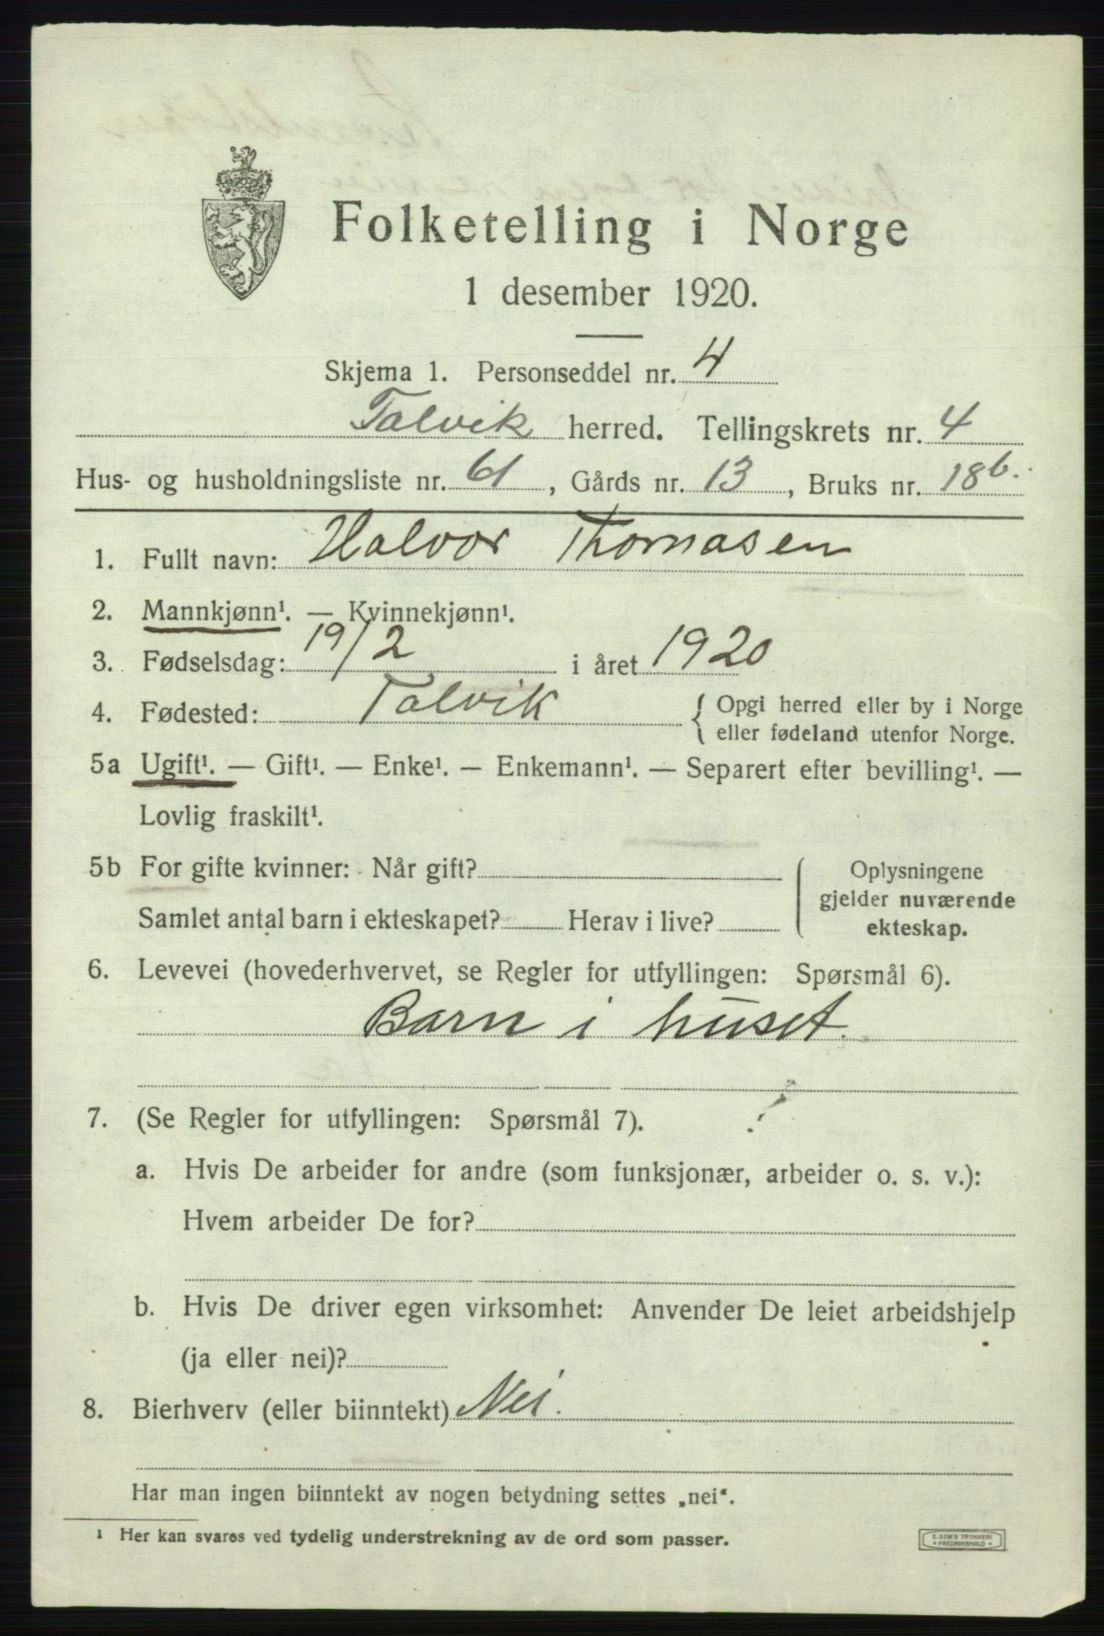 Folketelling i Norge
1 desember 1920.
Skjema 1. Personseddel nr. 4
Talvik herred. Tellingskrets nr. 4
Hus- og husholdningsliste nr. 61, Gårds nr. 13, Bruks nr. 18b.
1. Fullt navn: Halvor Thomasen
2. Mannkjønn¹. — Kvinnekjønn¹.
3. Fødselsdag: 19/2 i året 1920
4. Fødested: Talvik { Opgi herred eller by i Norge
eller fødeland utenfor Norge.
5a Ugift¹. — Gift¹. — Enke¹. — Enkemann¹. — Separert efter bevilling¹. —
Lovlig fraskilt¹.
5b For gifte kvinner: Når gift?
Samlet antal barn i ekteskapet? Herav i live?
Oplysningene
gjelder nuværende
ekteskap.
6. Levevei (hovederhvervet, se Regler for utfyllingen: Spørsmål 6).
Barn i huset.
7. (Se Regler for utfyllingen: Spørsmål 7).
a. Hvis De arbeider for andre (som funksjonær, arbeider o. s. v.):
Hvem arbeider De for?
b. Hvis De driver egen virksomhet: Anvender De leiet arbeidshjelp
(ja eller nei)?
8. Bierhverv (eller biinntekt) Nei.
Har man ingen biinntekt av nogen betydning settes „nei“.
¹ Her kan svares ved tydelig understrekning av de ord som passer.
E. SEM'S TRYKKERI
FREDRIKSHALD